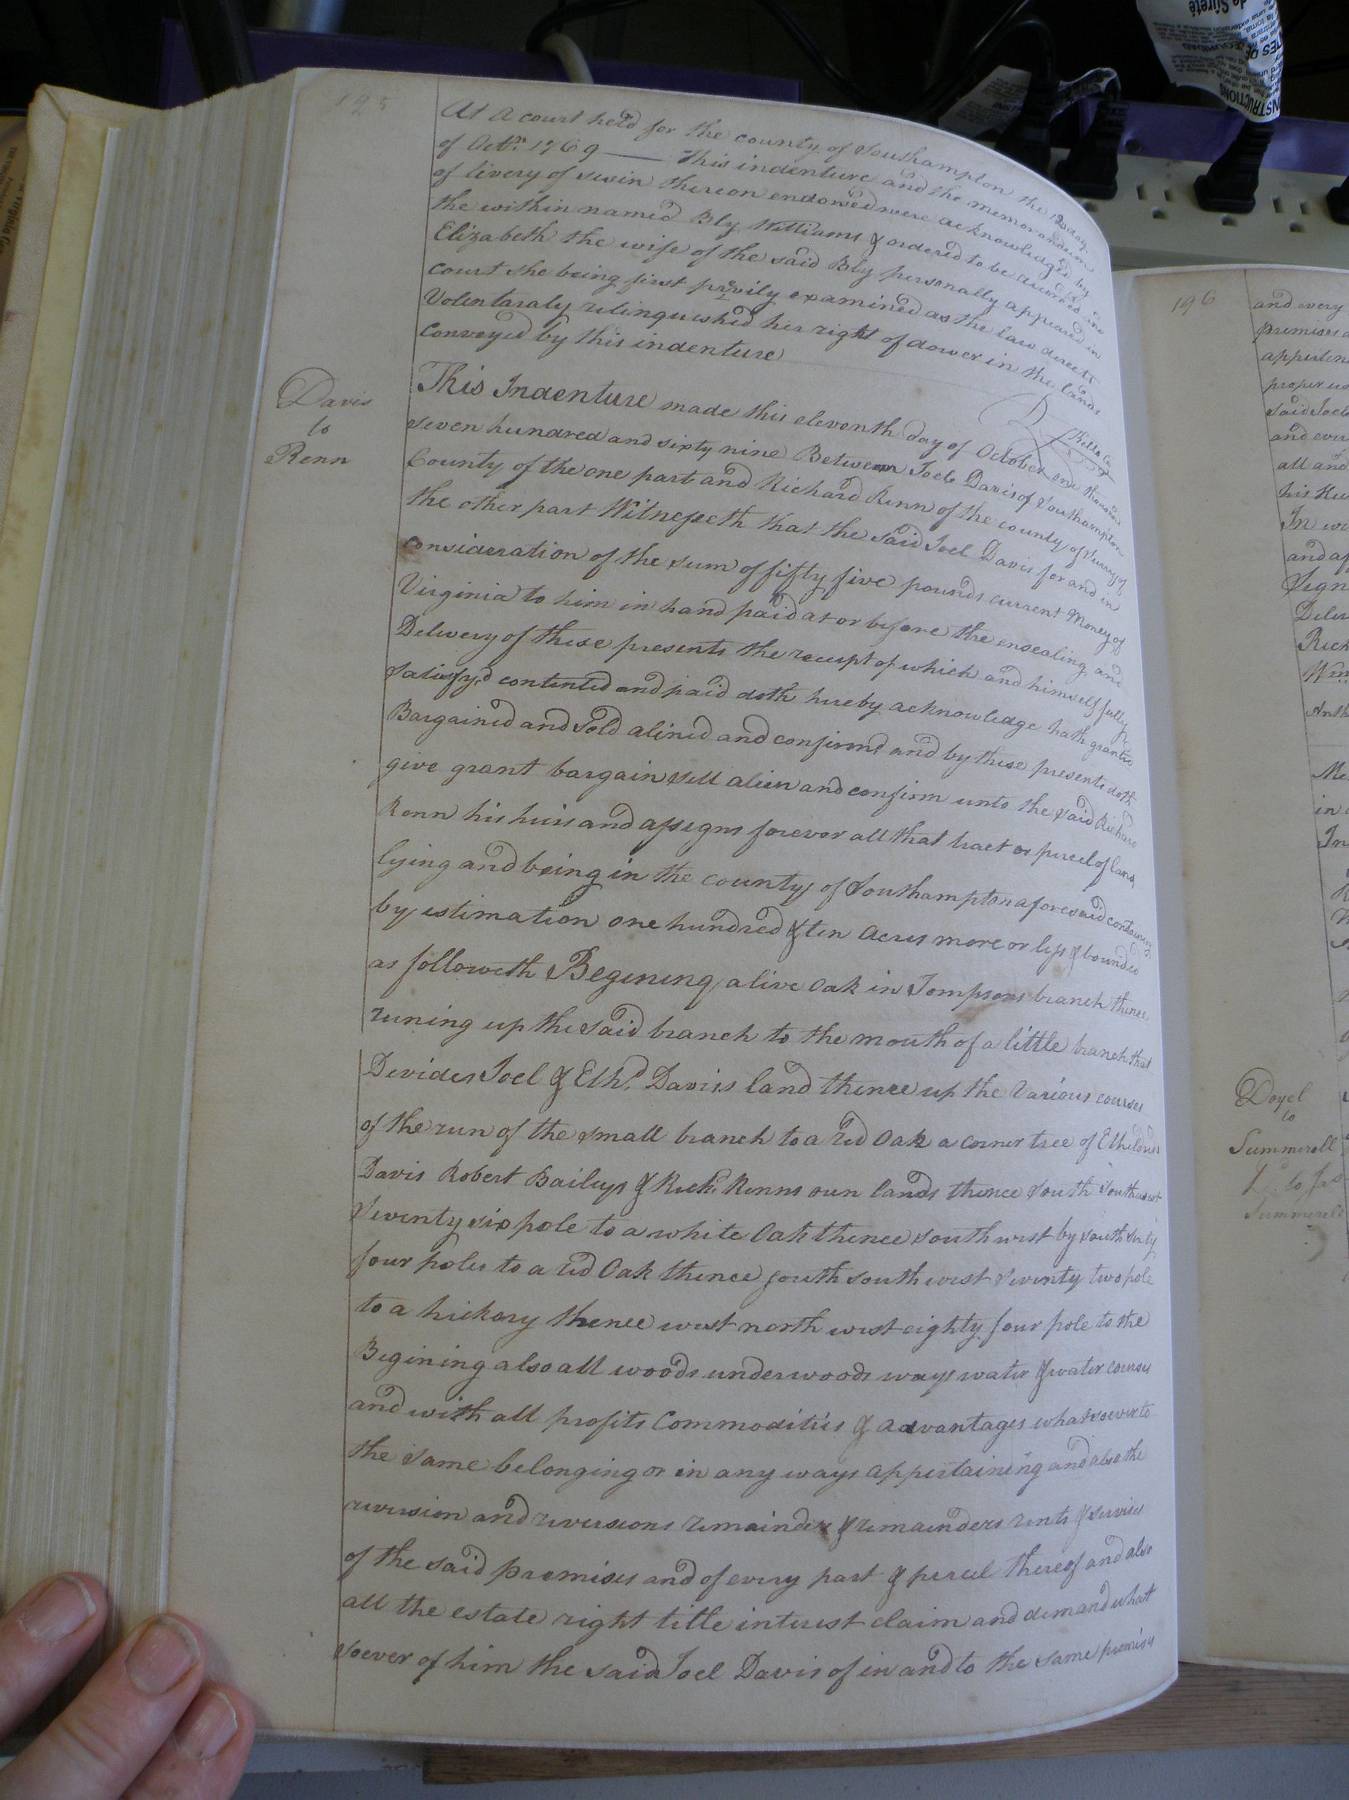 195
At a court held for the county of Southampton the 12 day
of Octr. 1769 — This indenture and the memorandum
of livery of sesin thereon endorsed were acknowledged by
the within named Bly Williams & ordered to be recorded and
Elizabeth the wife of the said Bly personally appeared in
court she being first prively examined as the law directs
Voluntaraly relinquished her right of dower in the lands
conveyed by this indenture
Davis
to
Renn
This Indenture made this eleventh day of October one thousand
seven hundred and sixty nine Between Joel Davis of Southampton
County of the one part and Richard Renn of the county of Surry of
the other part Witnesseth that the said Joel Davis for and in
consideration of the sum of fifty five pounds current Money of
Virginia to him in hand paid at or before the ensealing and
Delivery of these presents the receipt of which and himself fully
satisfy,d contented and paid doth hereby acknowledge hath granted
Bargained and Sold aliened and confirmd and by these presents doth
give grant bargain sell alien and confirm unto the said Richard
Renn his heirs and assigns forever all that tract or parcel of land
lying and being in the county of Southampton aforesaid containing
by estimation one hundred & ten acres more or less & bounded
as followeth Begining a live oak in Tompsons branch thence
runing up the said branch to the mouth of a little branch that
Devides Joel & Ethd. Davis land thence up the Various courses
of the run of the small branch to a red Oak a corner tree of Etheldred
Davis Robert Baileys & Richd. Renns own lands thence South Southwest
Seventy six pole to a white Oak thence south west by south sixty
four poles to a red Oak thence south south west seventy two pole
to a hickory thence west north west eighty four pole to the
Begining also all woods underwoods ways water & water courses
and with all profits Commodities & advantages whatsoever to
the same belonging or in any ways appertaining and also the
revirsion and reversions remainder & remainders rents & services
of the said premises and of every part & parcel thereof and also
all the estate right title interest claim and demand what
soever of him the said Joel Davis of in and to the same premises
196
and every
premises
apperten
proper us
said Joel
and ever
all and
his Hei
In wi
and af
Sign
Deliv
Rich
Doyel
to
Summerell
Summerell